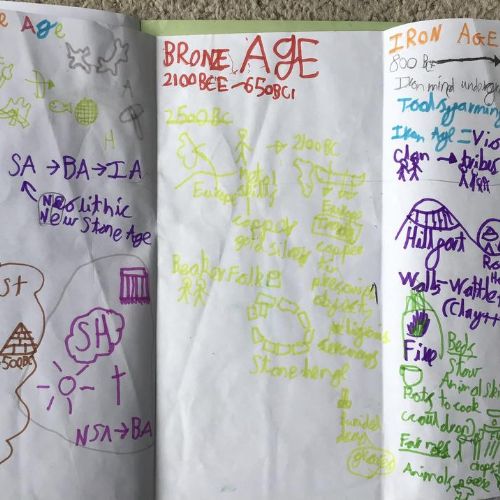 Age
H
SA → BA → IA
Neolithic
New Stone Age
st
500BC
SH
NSA → BA
BRONZE AGE
2100BCE - 650BCE
2500BC
→ 2100BC
Metal
Europe
Europe
copper
gold silver
copper
tin
precious
objects
Beaker Folk
religious
ceremonys
Stonehenge
to
bury
dead
IRON AGE
800 BCE
Iron mind undergr
Tools farming
Iron Age = Vio
Clan → tribes
Hillfort
Ro
Ho
Walls - Wattle
(Clay++
Fire
Beds
Straw
Animal Sk
Pots to cook
(couldron)
Farmers
crops
Animals